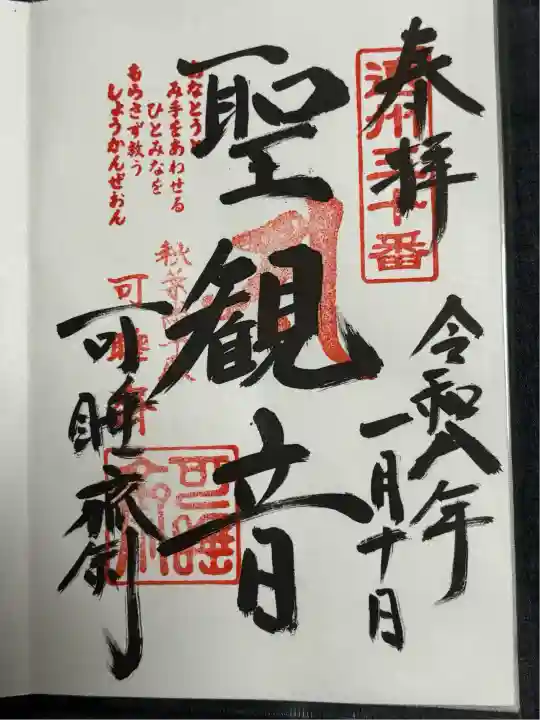 奉拝
遠州三十番
令和八年
一月十日
聖観音
み手をあわせる
ひとみなを
もらさず救う
しょうかんぜおん
可睡斎
可睡